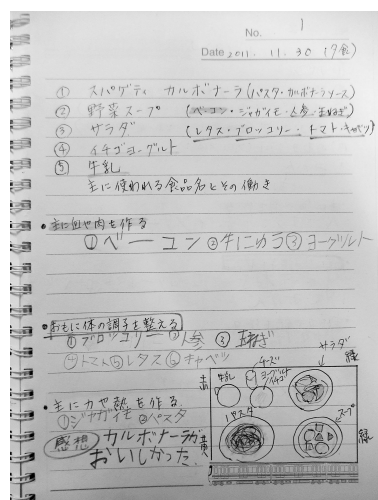 No. 1
Date 2011. 11. 30 (夕食)
① スパゲティ カルボナーラ (パスタ・カルボナーラソース)
② 野菜スープ (ベーコン・ジャガイモ・人参・玉ねぎ)
③ サラダ (レタス・ブロッコリー・トマト・キャベツ)
④ イチゴヨーグルト
⑤ 牛乳
主に使われる食品名とその働き
・主に血や肉を作る
①ベーコン ②牛にゅう ③ヨーグルト
・おもに体の調子を整える
①ブロッコリー ②人参 ③玉ねぎ
④トマト ⑤レタス ⑥キャベツ
・主に力や熱を作る
①ジャガイモ ②パスタ
感想 カルボナーラが
おいしかった。
サラダ 緑
赤 牛乳 チーズ
ヨーグルト
イチゴ
パスタ スープ
黄 緑